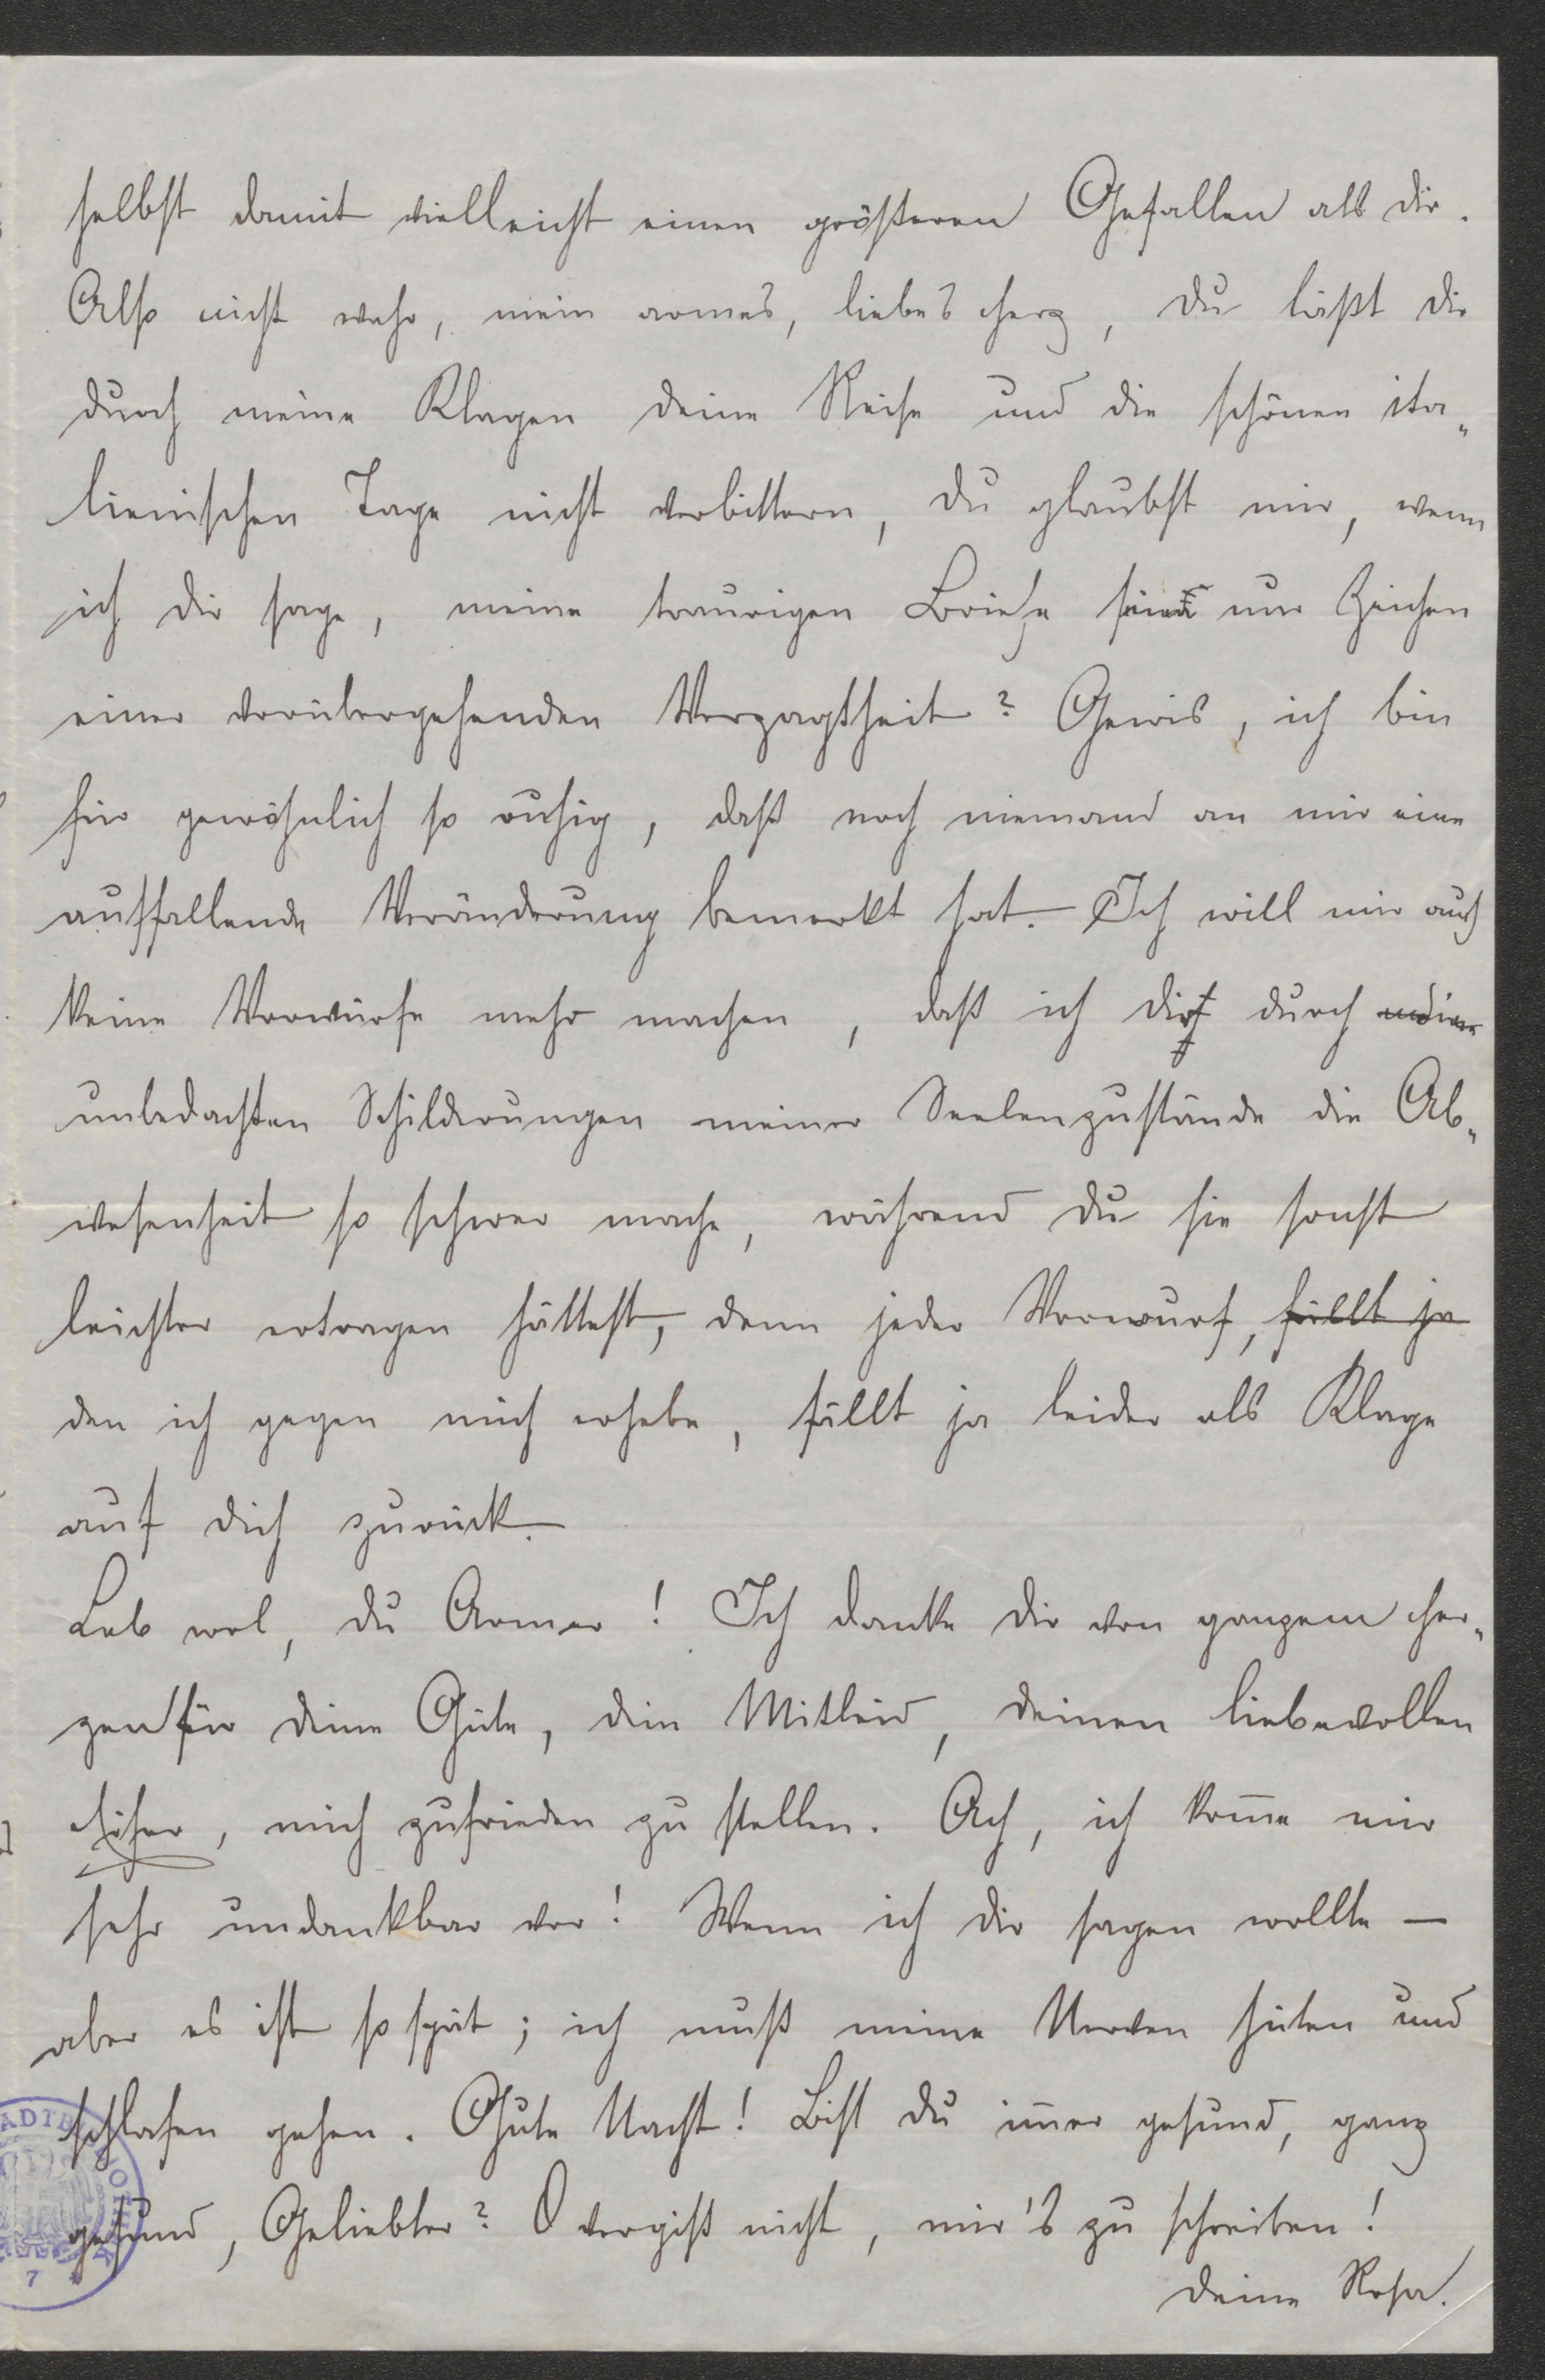 selbst damit vielleicht einen größeren Gefallen als dir.
Also nicht wahr, mein armes, liebes Herz, du läßt dir
durch meine Klagen deine Reise und die schönen ita„
lienischen Tage nicht verbittern, du glaubst mir, wenn
ich dir sage, meine traurigen Briefe sind nur Zeichen
einer vorübergehenden Verzagtheit? Gewis, ich bin
für gewöhnlich so ruhig, daß noch niemand an mir eine
auffallende Veränderung bemerkt hat. Ich will mir auch
keine Vorwürfe mehr machen, daß ich dir durch
unbedachten Schilderungen meiner Seelenzustände die Ab„
wesenheit so schwer mache, während du sie sonst
leichter ertragen hättest, denn jeder Vorwurf, fällt ja
den ich gegen mich erhebe, fällt ja leider als Klage
auf dich zurück.
Leb wol, du Armer! Ich danke dir von ganzem Her„
zen für deine Güte, dein Mitleid, deinen liebevollen
Eifer, mich zufrieden zu stellen. Ach, ich kom̅e mir
sehr undankbar vor! Wenn ich dir sagen wollte —
aber es ist so spät; ich muß meine Nerven hüten und
schlafen gehen. Gute Nacht! Bist du im̅er gesund, ganz
gesund, Geliebter? O vergiß nicht, mir's zu schreiben!
Deine Rosa.
7